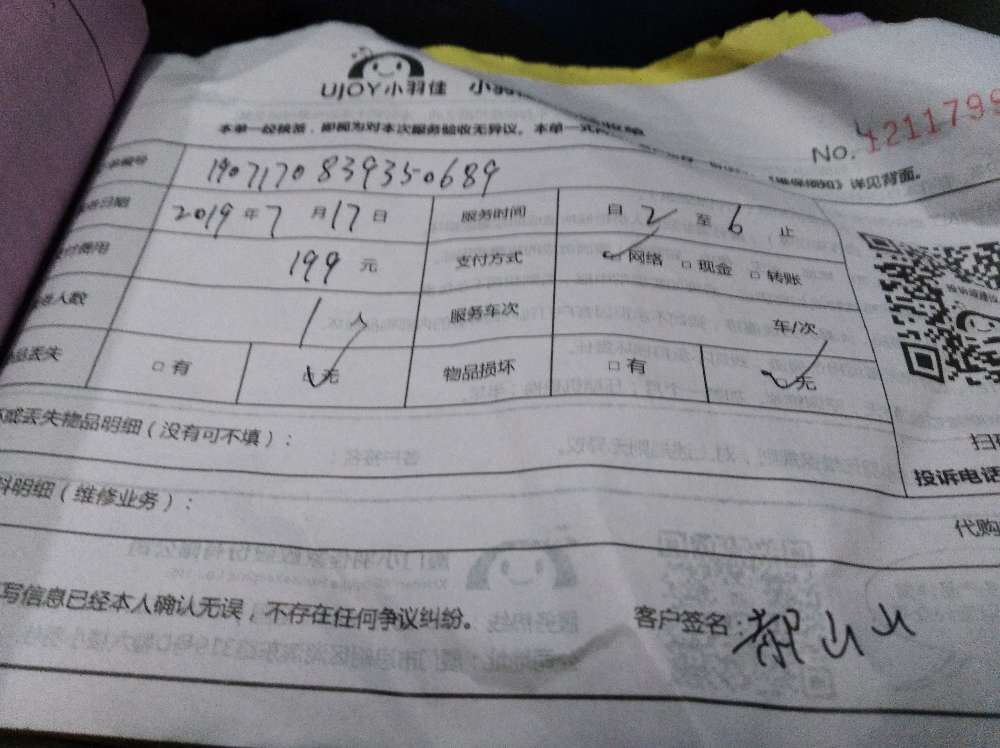 UJOY小羽佳 小
No. 1211799
本单一经核签，即视为对本次服务验收无异议。本单一式
详见背面。
编号 1907170839350689
日期 2019年7月17日 服务时间 自2至6止
费用 199元 支付方式 网络 □现金 □转账
人数 1人 服务车次 车/次
品丢失 □有 无 物品损坏 □有 无
或丢失物品明细（没有可不填）：
投诉电话
料明细（维修业务）：
代购
写信息已经本人确认无误，不存在任何争议纠纷。 客户签名：